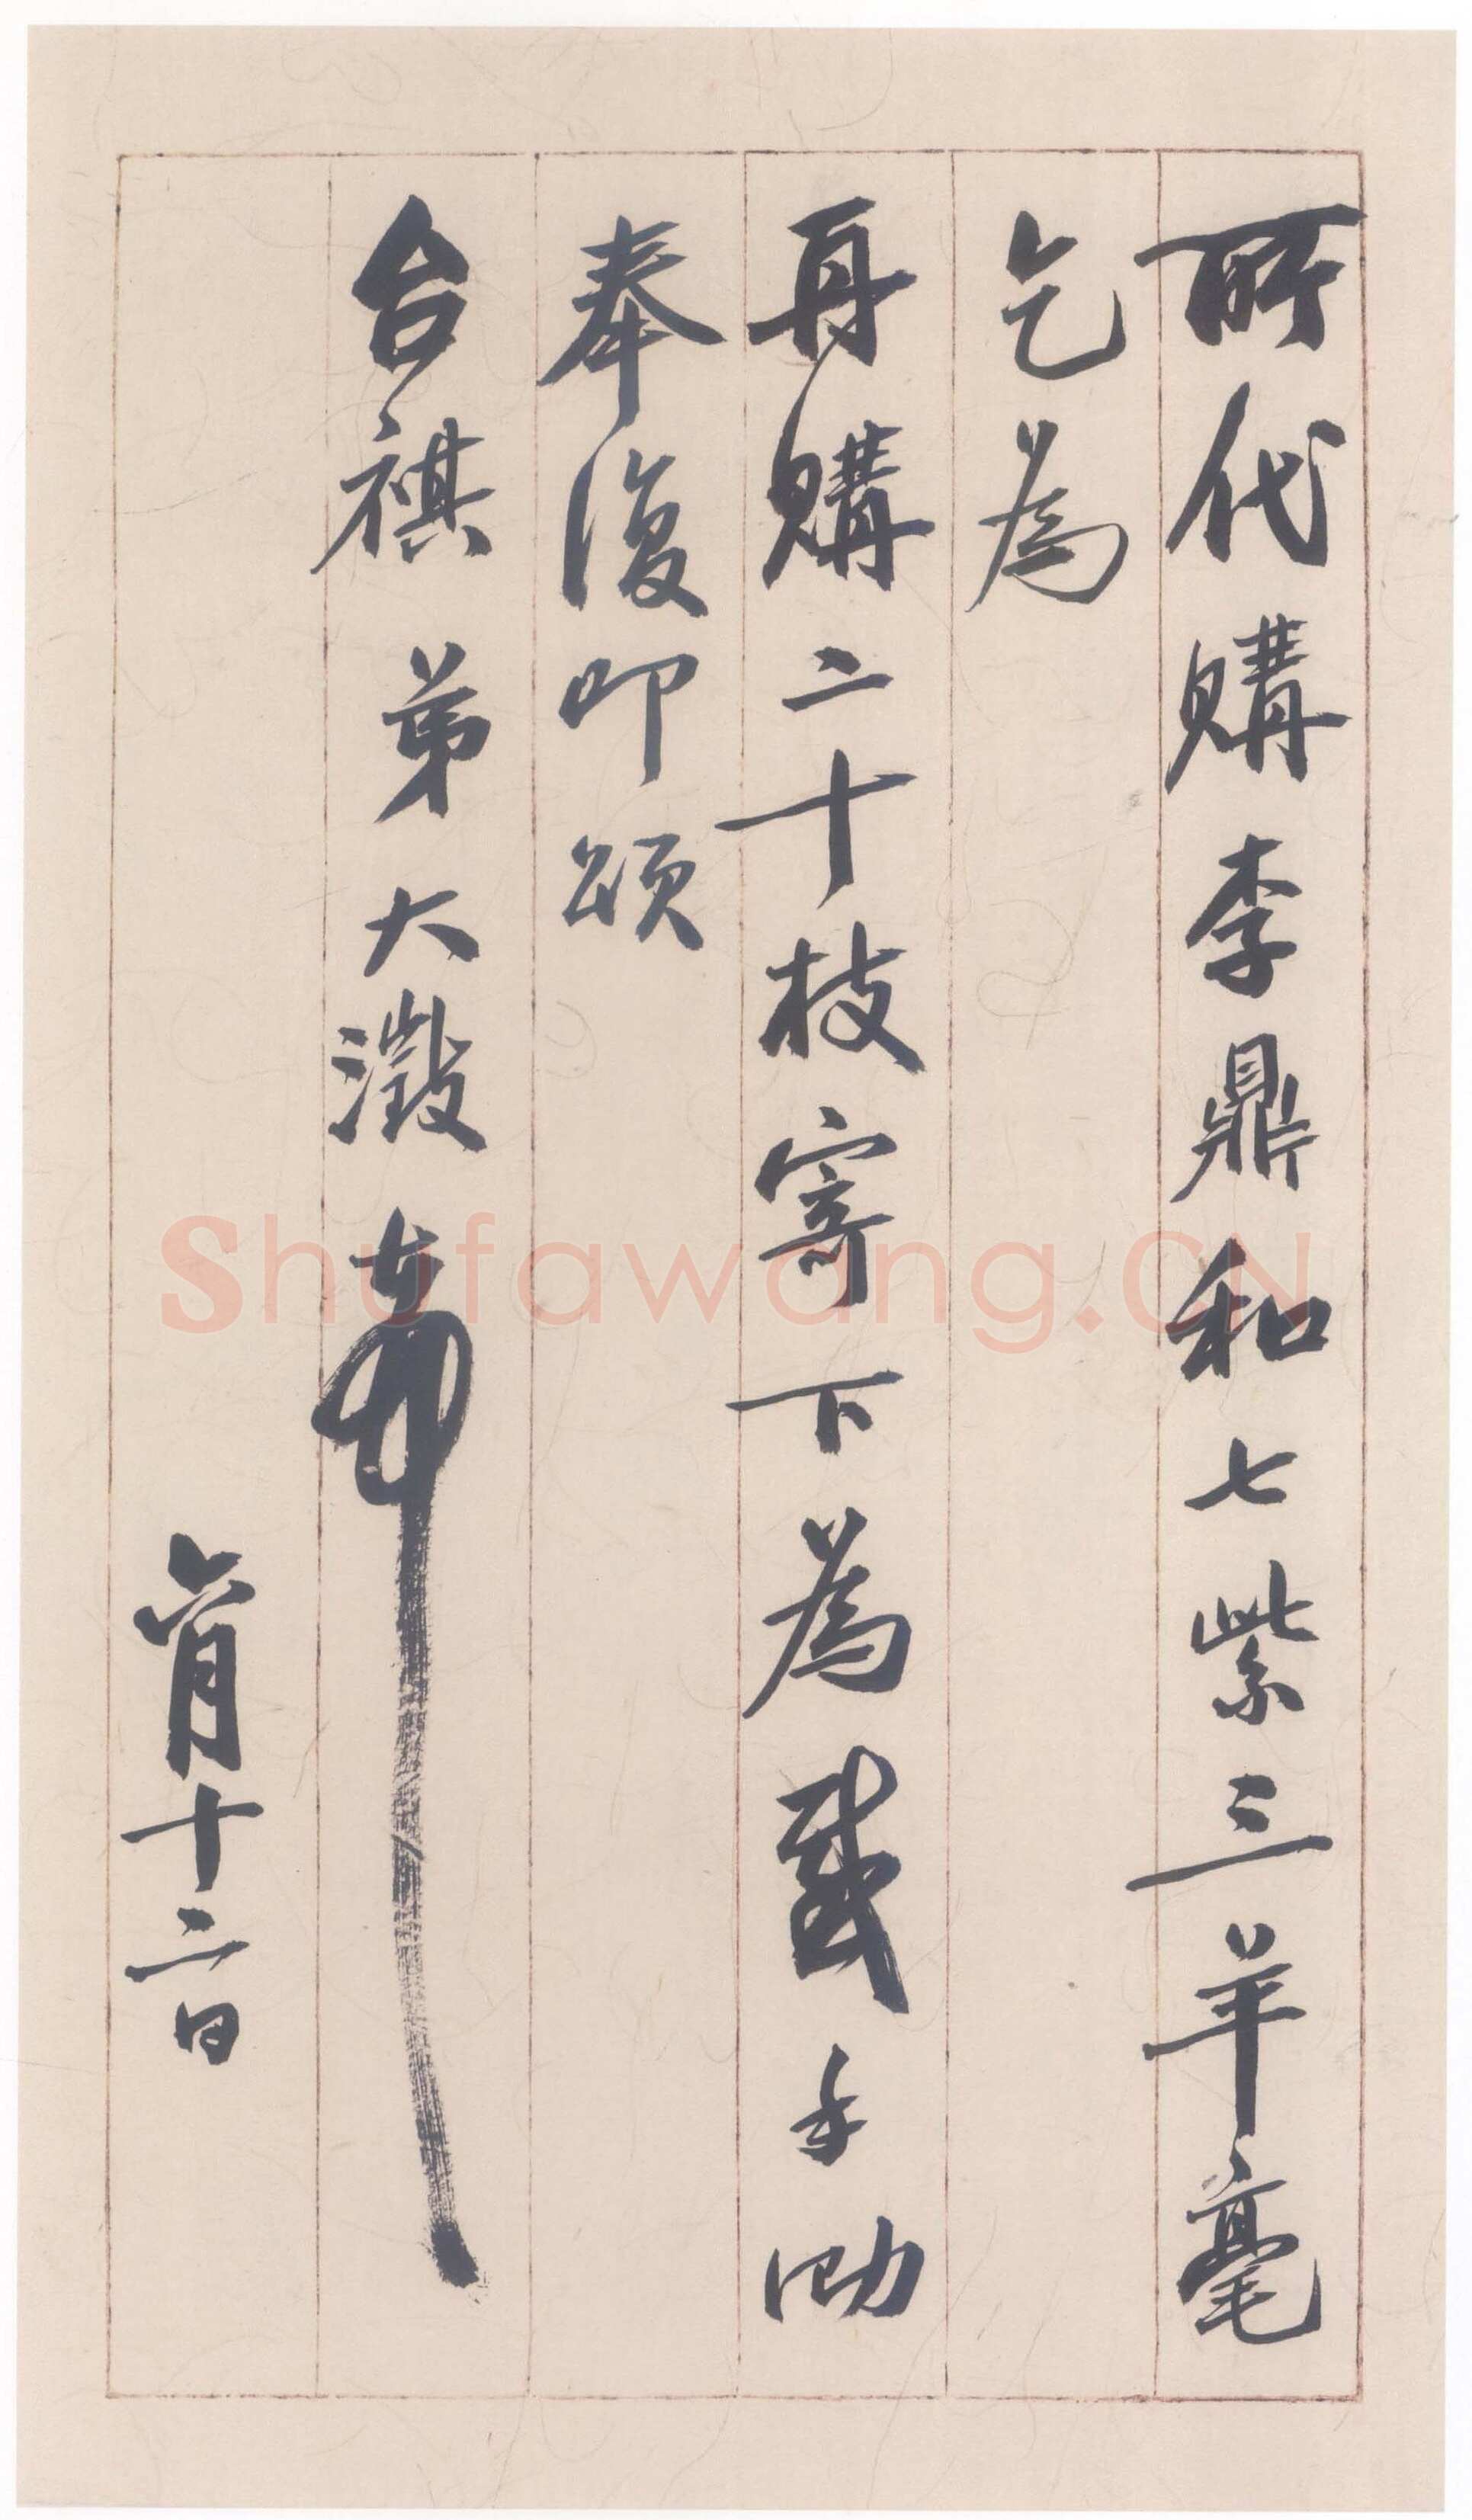 所代購李鼎和七紫三羊毫
乞為
再購二十枝寄下為感手泐
奉復叩頌
台祺 弟大澂頓首
六月十二日
Shufawang.CN